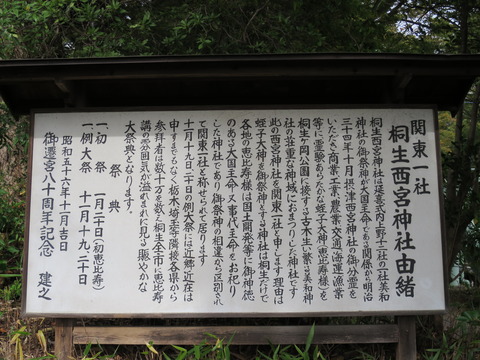 関東一社
桐生西宮神社由緒
桐生西宮神社は延喜式内上野十二社の一社美和
神社の御祭神が大国主命である関係から明治
三十四年十月摂津西宮神社の御分霊を
いただき商業工業農業交通海運漁業
等に霊験あらたかな蛭子大神(恵比寿様)を
桐生ヶ岡公園に接する古木生い繁る美和神
社の荘重な神域におまつりした神社です
此の西宮神社を関東一社と申します理由は
蛭子大神を御祭神とする神社は桐生だけで
各地の恵比寿様は国土開発等に御神徳
のある大国主命又事代主命をお祀り
した神社であり御祭神の相違から区別され
て関東一社と称せられて居ります
十一月十九、二十日の例大祭には近郷近在は
申すまでもなく栃木埼玉等隣接各県から
参拝者は数十万を数え桐生全市に恵寿
講の雰囲気が溢れまれに見る賑やかな
大祭典となります。
祭典
一、初祭 一月二十日(初恵比寿)
一、例大祭 十一月十九、二十日
昭和五十六年十一月吉日
御遷宮八十周年記念 建之